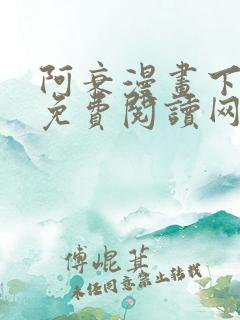 阿衰漫畫下
免費閱讀网
傅崐萁
未经同意禁止转载